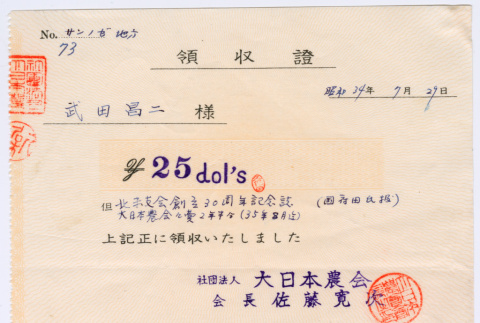 No. サンノゼ地方
73
領収證
昭和34年7月29日
武田昌二様
25 dol's
但 北米支会創立30周年記念誌
大日本農会々費2年半分(35年8月迄)
上記正に領収いたしました
社団法人 大日本農会
会長 佐藤寛次